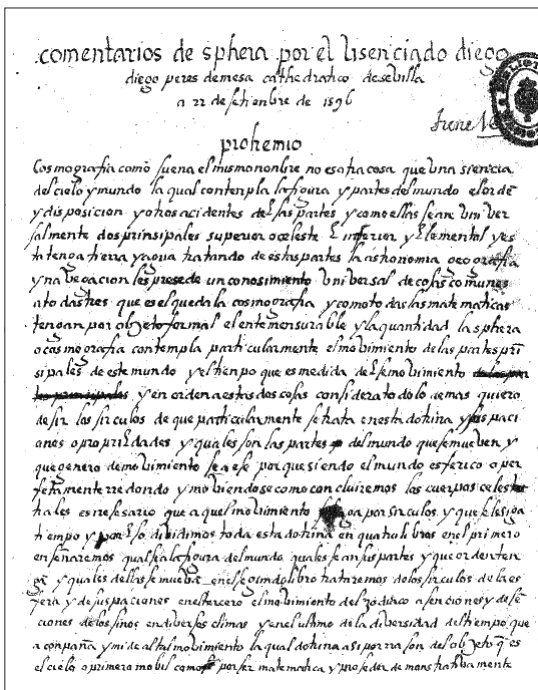 comentarios de sphera por el lisenciado diego
diego peres de mesa cathedratico de sevilla
a 22 de setienbre de 1596
prohemio
Cosmografia como suena el mismo nonbre no es otra cosa que una siencia
del cielo y mundo la qual contenpla la figura y partes del mundo el ordē
y disposicion y otros accidentes de las partes y como ellas sean univer
salmente dos prinsipales superior o celeste e inferior y elemental y es
ta tenga tierra y agua tratando de estas partes la astronomia geografia
y navegacion les presede un conosimiento universal de cosas comunes
a todas tres que es el que da la cosmografia y como todas las matematicas
tengan por objeto formal el ente mensurable y la quantidad la sphera
o cosmografia contenpla particularmente el movimiento de las partes prī
sipales de este mundo y el tienpo que es medida de ese movimiento
y en orden a estas dos cosas considera todo lo demas quiero
desir los sirculos de que particularmente se trata en esta dotrina y sus paci
ones o propriedades y quales son las partes del mundo que se mueven y
que genero de movimiento sea ese porque siendo el mundo esferico o per
fetamente redondo y moviendose como concluiremos los cuerpos celes
tiales es nesesario que aquel movimiento se haga por sirculos y que le siga
tienpo y por eso dividimos toda esta dotrina en quatro libros en el primero
enseñaremos qual sea la figura del mundo quales sean sus partes y que orden ten
gā y quales dellas se muevā en el segundo libro trataremos de los sirculos de la es
fera y de sus paciones en el tercero el movimiento del zodiaco asenciones y dese
ciones de los sinos en diversos climas y en el ultimo de la diversidad del tienpo que
aconpaña y mide al tal movimiento la qual dotrina asi por rason del objeto q̄ es
el cielo o primero mobil como por ser matematica y proseder demonstrativamente